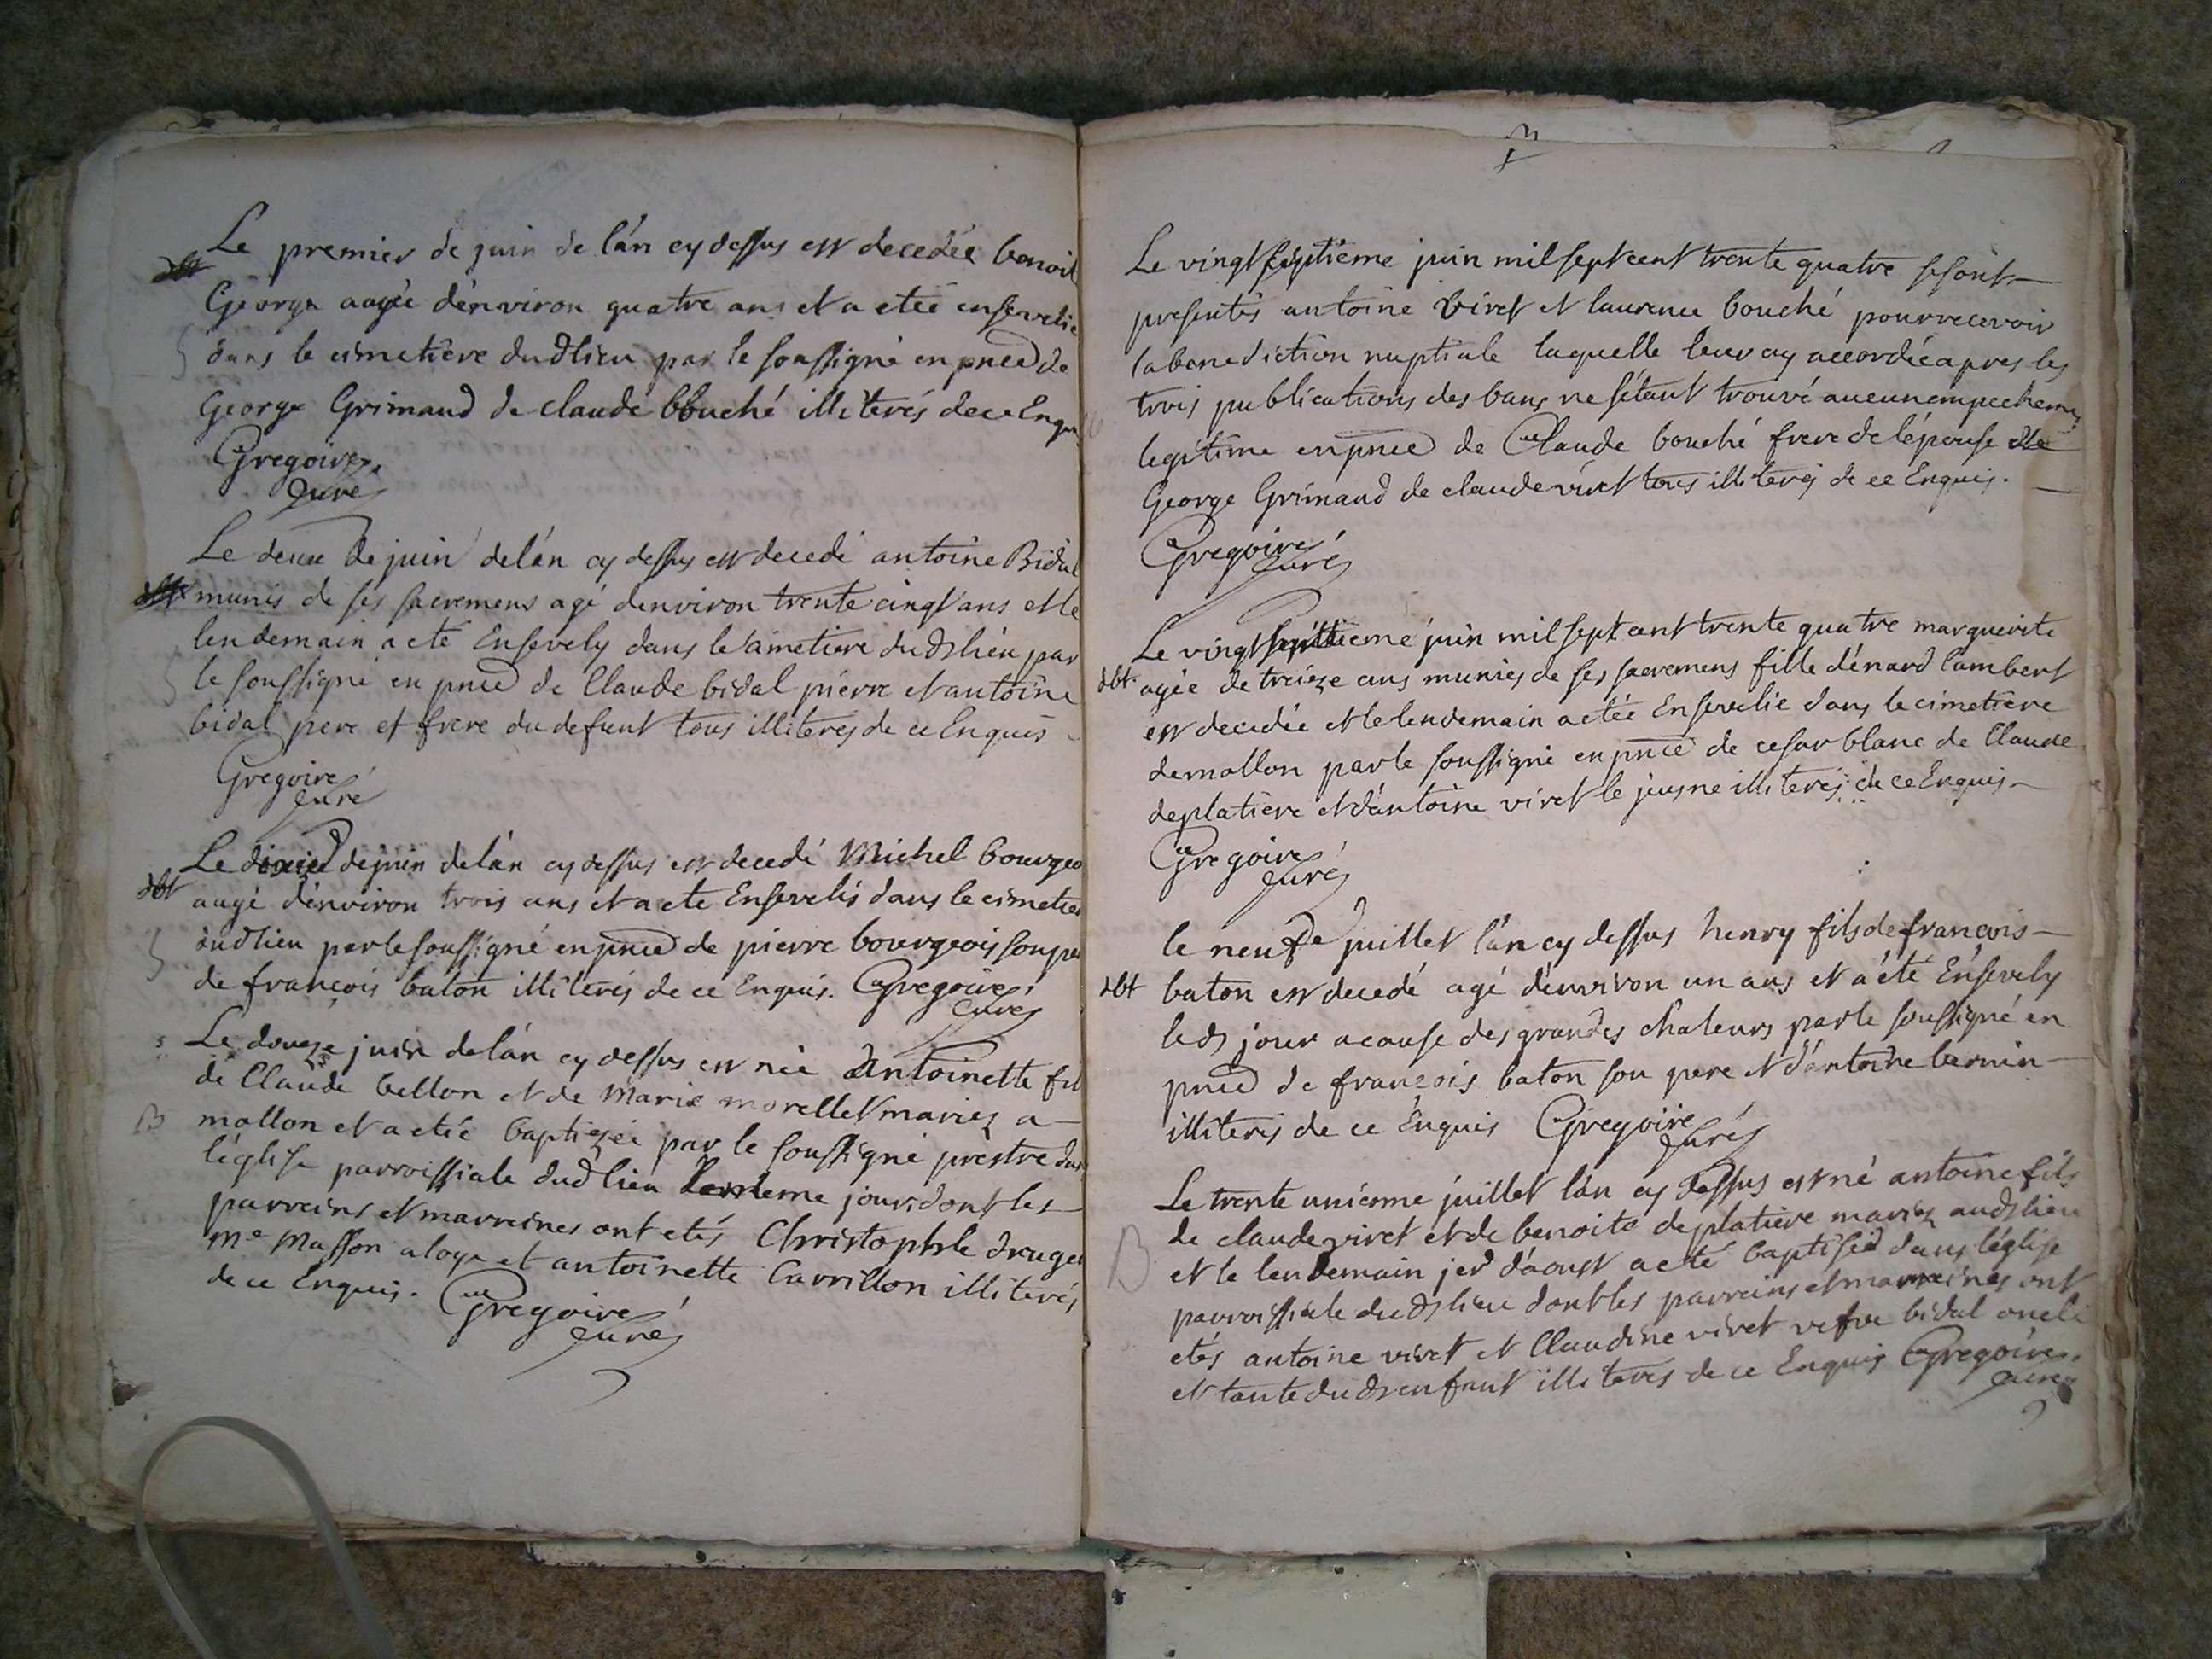 Le premier de juin de lán cy dessus est decedée benoit
dbt
George aagée dénviron quatre ans et a etée ensevelie
dans le cimetière dudlieu par le soussigné en pnce de
George Grimaud de claude bouché illiterés de ce Enqu
Gregoire
Curé
Le deux de juin delán cy dessus est decedé antoine Bidal
munis de ses sacremens agé denviron trente cinq ans et le
lendemain a eté Ensevely dans le cimetiere dudslieu par
le soussigné en pnce de Claude bidal pierre et antoine
bidal pere et frere du defunt tous illiterés de ce Enquis
Gregoire
Curé
Le de juin delán cy dessus est decedé Michel bourgeo
dbt
aagé dénviron trois ans et a eté Ensevelis dans le cimetie
dudlieu par le soussigné en pnce de pierre bourgeois son pe
de françois baton illiterés de ce Enquis. Gregoire
Curé
Le douze juin delán cy dessus est née Antoinette fil
de Claude bellon et de Marie morellet mariez a
B
mollon et a etée baptizée par le soussigné prestre dan
léglise parroissiale dudlieu le meme jour dont les
parreins et marreines ont etés Christophle druget
Me Masson aloye et antoinette Carrillon illiterés
de ce Enquis. Gregoire
Curé
Le vingt septième juin mil sept cent trente quatre se sont
presentés antoine Viret et laurence bouché pour recevoir
la benediction nuptiale laquelle leur ay accordée apres les
trois publications des bans ne sétant trouvé aucun empechemen
legitime en pnce de Claude bouché frere de lépouse de
George Grimaud de claude viret tous illiterés de ce Enquis.
Gregoire
Curé
Le vingt juin mil sept cent trente quatre marguerite
dbt
agée de treize ans munies de ses sacremens fille dénard lambert
est decedée et le lendemain a etée Ensevelie dans le cimetiere
de mollon par le soussigné en pnce de cesar blanc de Claude
deplatiere et dántoine viret le jeusne illiterés de ce Enquis
Gregoire
Curé
le neuf de juillet lán cy dessus henry fils de françois
dbt
baton est decedé agé dénviron un ans et a été Énsevely
leds jour a cause des grandes chaleurs par le soussigné en
pnce de françois baton son pere et dántoine bernin
illiterés de ce Enquis Gregoire
Curé
Le trente unieme juillet lán cy dessus est né antoine fils
de claude viret et de benoite deplatiere mariez audslieu
B
et le lendemain jer dáoust a eté baptisé dans léglise
parroissiale dudslieu dont les parreins et marreines ont
etés antoine viret et Claudine viret vefve bidal oncle
et tante duds enfant illiterés de ce Enquis Gregoire
Curé